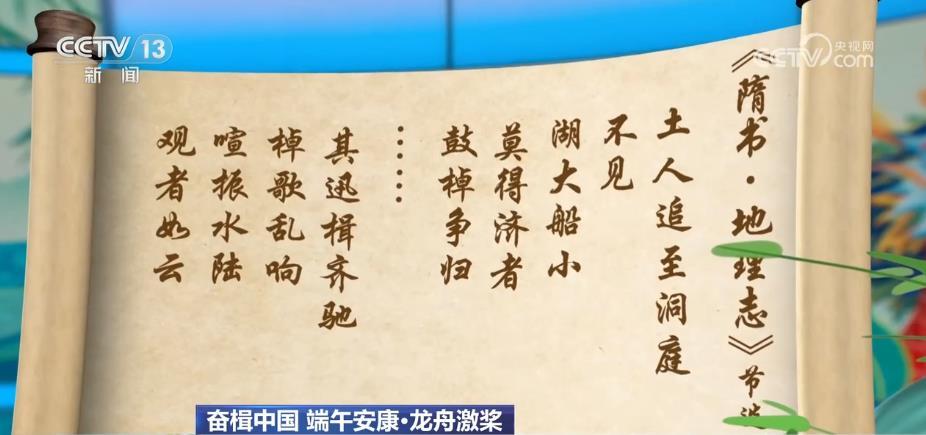 CCTV 13
新闻
央视网
CCTV.com
《隋书·地理志》节选
土人追至洞庭
不见
湖大船小
莫得济者
鼓棹争归
……
其迅楫齐驰
棹歌乱响
喧振水陆
观者如云
奋楫中国 端午安康·龙舟激桨